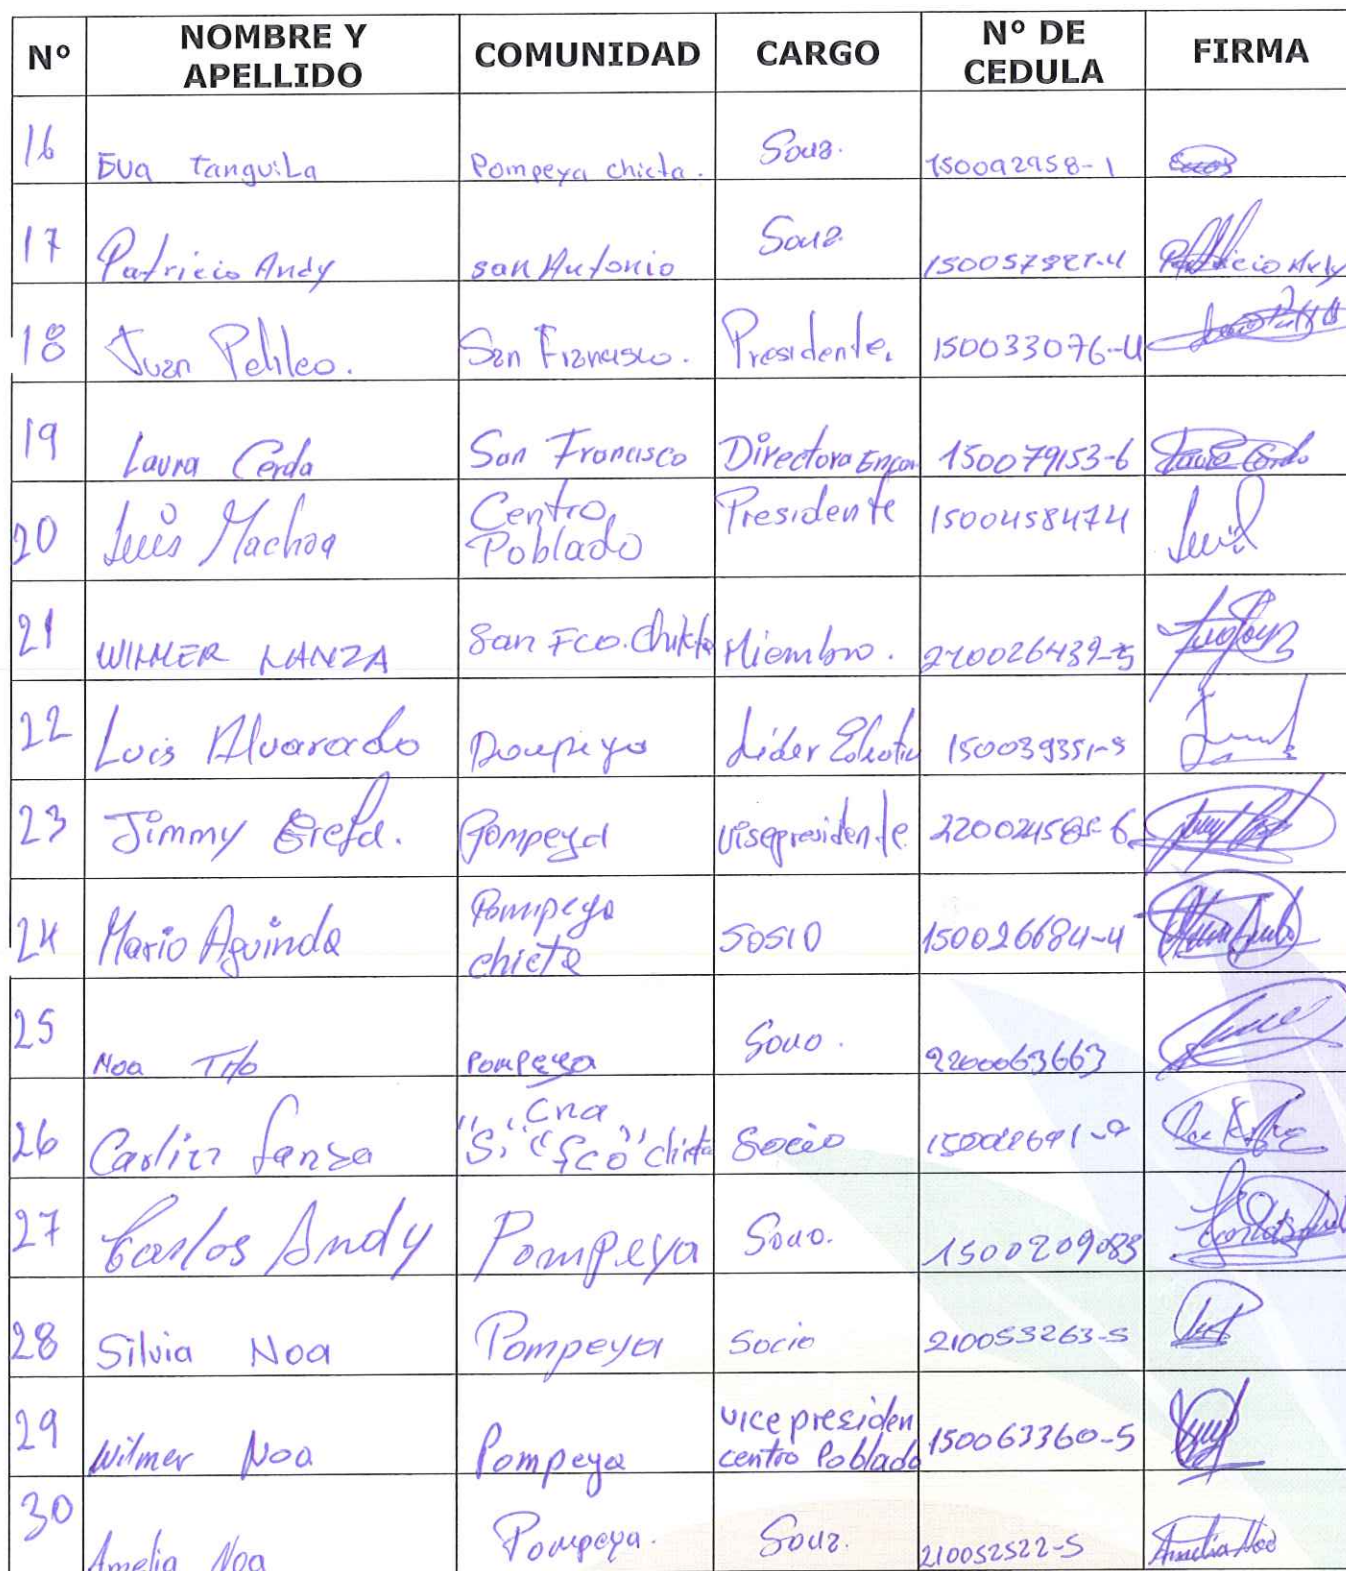 Nº NOMBRE Y APELLIDO COMUNIDAD CARGO Nº DE CEDULA FIRMA
16 Eva Tanguila Pompeya chicta. Socia. 150092958-1
17 Patricio Andy san Antonio Socia Patricio Andy
18 Juan Pelileo. San Francisco. Presidente. 150033076-4
19 Laura Cerda San Francisco Directora Encar 150079153-6 Laura Cerda
20 Luis Machoa Centro Poblado Presidente 1500458474 Luis
21 WILMER LANZA San Fco. Chikta Miembro. 220026439-5
22 Luis Alvarado Pompeya Líder 150039351-5
23 Jimmy Grefa. Pompeya visepresidente. 6
24 Mario Aguinda Pompeya chicta sosio 150026684-4
25 Noa Tito Pompeya Socio. 2200063663
26 Lanza Cna "S," "Fco" chicta Socio
27 Carlos Andy Pompeya Socio. 1500209083
28 Silvia Noa Pompeya Socio 210053263-5
29 Wilmer Noa Pompeya vice presiden centro Poblado 150063360-5
30 Amelia Noa Pompeya. Socia. 210052522-5 Amelia Noa